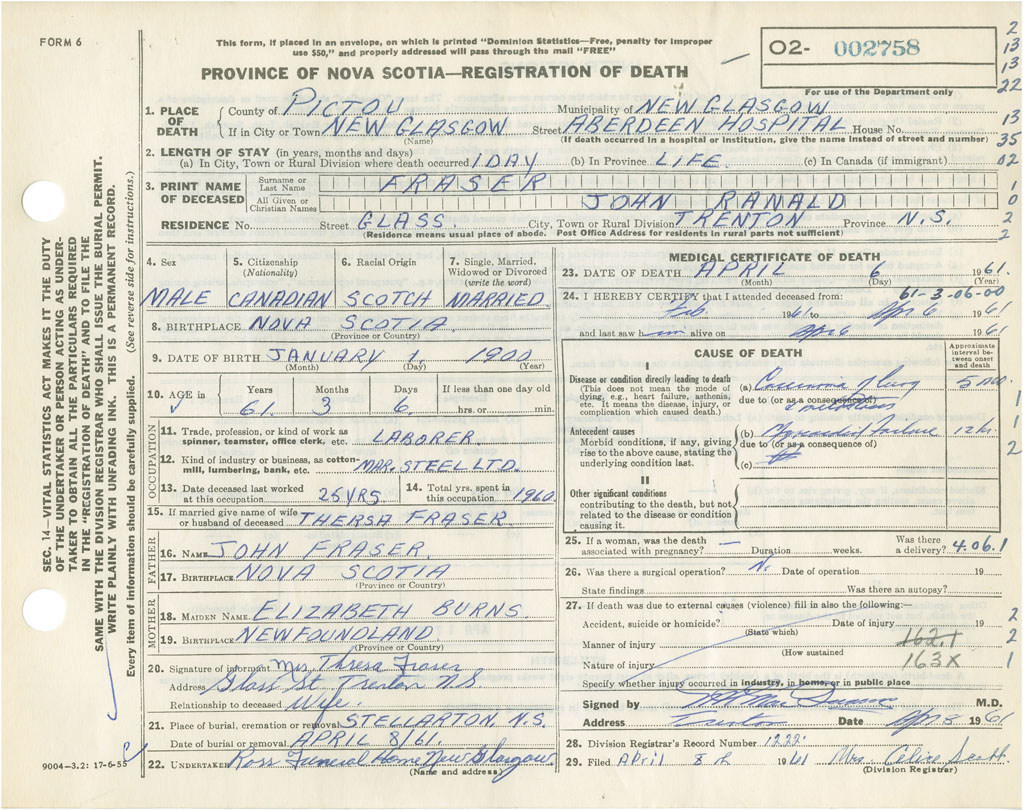 FORM 6
This form, if placed in an envelope, on which is printed "Dominion Statistics—Free, penalty for improper
use $50," and properly addressed will pass through the mail "FREE"
O2- 002758
For use of the Department only
PROVINCE OF NOVA SCOTIA—REGISTRATION OF DEATH
2
13
13
22
13
35
02
1
0
2
2
1. PLACE OF DEATH
County of PICTOU Municipality of NEW GLASGOW
If in City or Town NEW GLASGOW Street ABERDEEN HOSPITAL House No.
(Name) (If death occurred in a hospital or institution, give the name instead of street and number)
2. LENGTH OF STAY (in years, months and days)
(a) In City, Town or Rural Division where death occurred 1 DAY (b) In Province LIFE (c) In Canada (if immigrant)
3. PRINT NAME OF DECEASED
Surname or Last Name FRASER
All Given or Christian Names JOHN RANALD
RESIDENCE No. Street GLASS City, Town or Rural Division TRENTON Province N.S.
(Residence means usual place of abode. Post Office Address for residents in rural parts not sufficient)
SEC. 14—VITAL STATISTICS ACT MAKES IT THE DUTY
OF THE UNDERTAKER OR PERSON ACTING AS UNDER-
TAKER TO OBTAIN ALL THE PARTICULARS REQUIRED
IN THE "REGISTRATION OF DEATH" AND TO FILE THE
SAME WITH THE DIVISION REGISTRAR WHO SHALL ISSUE THE BURIAL PERMIT.
WRITE PLAINLY WITH UNFADING INK. THIS IS A PERMANENT RECORD.
Every item of information should be carefully supplied. (See reverse side for instructions.)
4. Sex 5. Citizenship 6. Racial Origin 7. Single, Married,
(Nationality) Widowed or Divorced
(write the word)
MALE CANADIAN SCOTCH MARRIED
8. BIRTHPLACE NOVA SCOTIA
(Province or Country)
9. DATE OF BIRTH JANUARY 1, 1900
(Month) (Day) (Year)
10. AGE in Years Months Days If less than one day old
61 3 6. hrs. or min.
OCCUPATION
11. Trade, profession, or kind of work as
spinner, teamster, office clerk, etc. LABORER.
12. Kind of industry or business, as cotton-
mill, lumbering, bank, etc. MAR. STEEL LTD.
13. Date deceased last worked 14. Total yrs. spent in
at this occupation 25 YRS this occupation 1960
15. If married give name of wife
or husband of deceased THERSA FRASER.
FATHER
16. NAME JOHN FRASER.
17. BIRTHPLACE NOVA SCOTIA
(Province or Country)
MOTHER
18. MAIDEN NAME ELIZABETH BURNS
19. BIRTHPLACE NEWFOUNDLAND
(Province or Country)
20. Signature of informant Mrs. Thersa Fraser
Address Glass St. Trenton N.S
Relationship to deceased Wife.
21. Place of burial, cremation or removal STELLARTON, N.S.
Date of burial or removal APRIL 8/61.
22. UNDERTAKER Ross Funeral Home New Glasgow.
(Name and address)
9004—3.2: 17-6-55
MEDICAL CERTIFICATE OF DEATH
23. DATE OF DEATH APRIL 6 1961.
(Month) (Day) (Year)
24. I HEREBY CERTIFY that I attended deceased from: 61-3-06-00
Feb 1961 to Apr 6 1961
and last saw him alive on Apr 6 1961
CAUSE OF DEATH
Approximate interval between onset and death
I
Disease or condition directly leading to death (a) Carcinoma of lung 5 mo.
(This does not mean the mode of
dying, e.g., heart failure, asthenia,
etc. It means the disease, injury, or
complication which caused death.)
due to (or as a consequence of)
Antecedent causes (b) Myocardial failure 12 hr.
Morbid conditions, if any, giving
rise to the above cause, stating the
underlying condition last.
due to (or as a consequence of)
(c)
II
Other significant conditions
contributing to the death, but not
related to the disease or condition
causing it.
1
1
2
25. If a woman, was the death Was there
associated with pregnancy? — Duration weeks. a delivery? 4.06.1
26. Was there a surgical operation? N. Date of operation 19
State findings Was there an autopsy?
27. If death was due to external causes (violence) fill in also the following:—
Accident, suicide or homicide? Date of injury 19 2
(State which)
Manner of injury 162.1 2
(How sustained)
Nature of injury 163X 1
Specify whether injury occurred in industry, in home, or in public place
Signed by M.D.
Address Trenton Date Apr 8 1961
28. Division Registrar's Record Number 1222.
29. Filed April 8th 1961 Mrs. Celire Scott.
(Division Registrar)